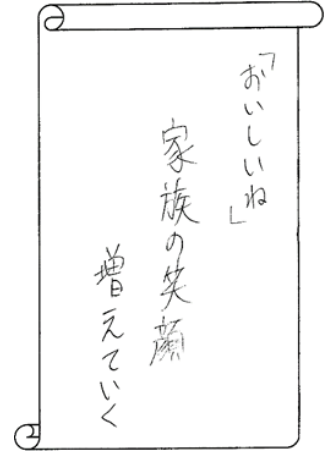 「おいしいね」
家族の笑顔
増えていく